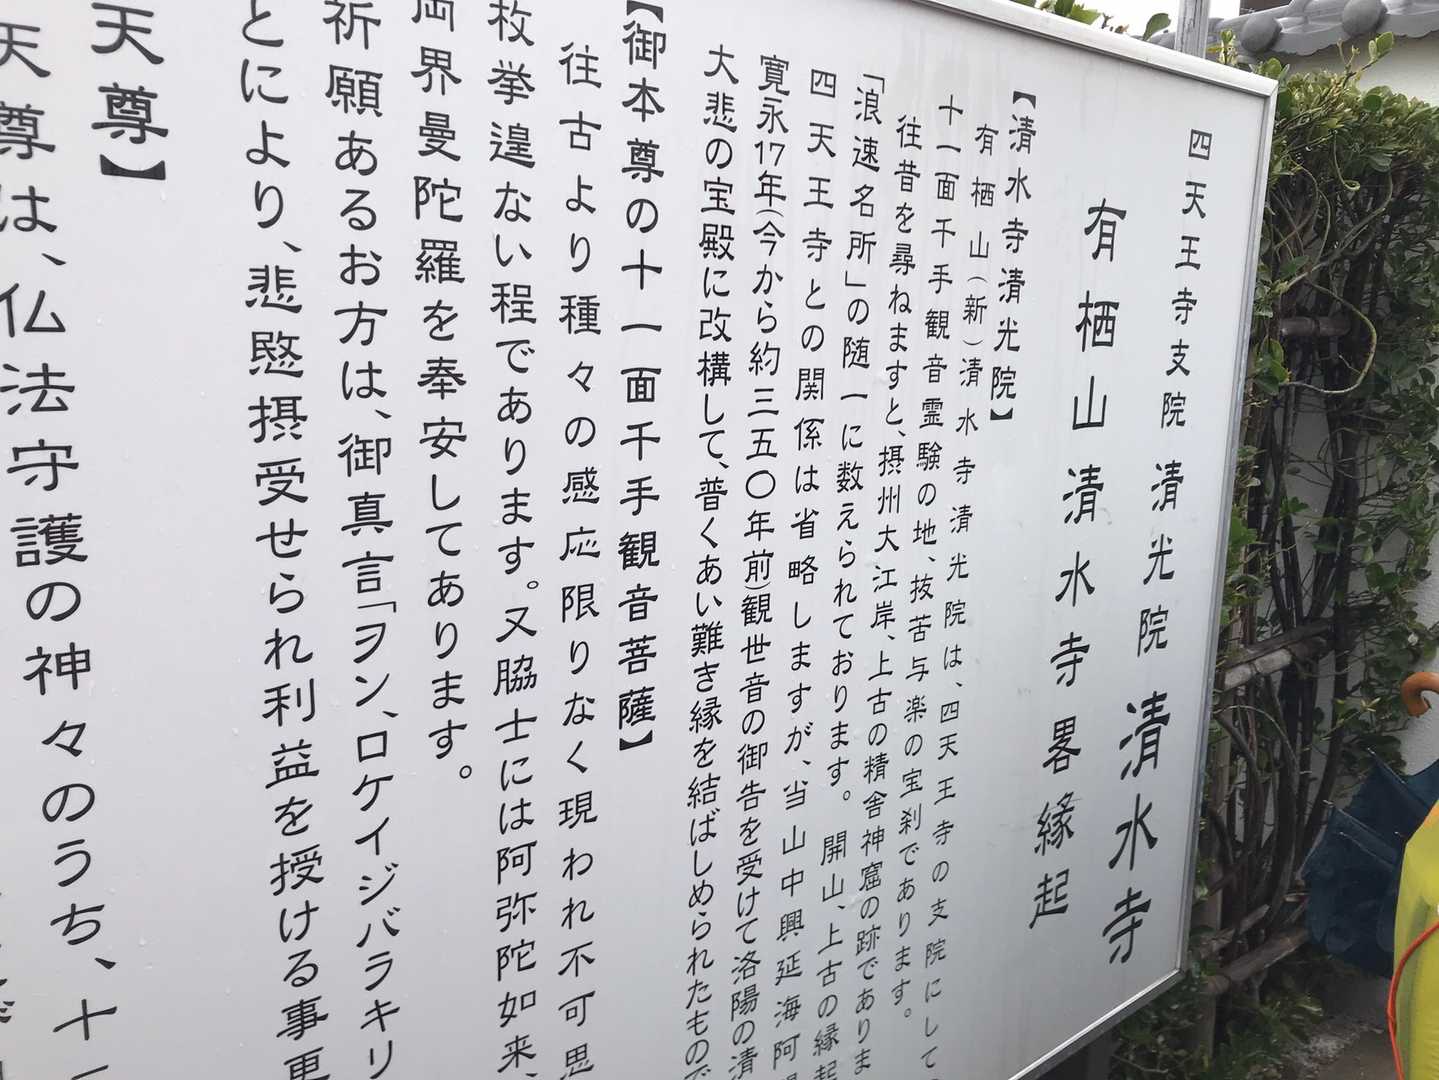 四天王寺支院 清光院 清水寺
有栖山清水寺畧縁起
【清水寺清光院】
有栖山(新)清水寺清光院は、四天王寺の支院にして
十一面千手観音霊験の地、抜苦与楽の宝刹であります。
往昔を尋ねますと、摂州大江岸、上古の精舎神窟の跡でありま
「浪速名所」の随一に数えられております。開山、上古の縁起
四天王寺との関係は省略しますが、当山中興延海阿
寛永17年(今から約三五〇年前)観世音の御告を受けて洛陽の清
大悲の宝殿に改構して、普くあい難き縁を結ばしめられたもので
【御本尊の十一面千手観音菩薩】
往古より種々の感応限りなく現われ不可思
枚挙遑ない程であります。又脇士には阿弥陀如来、
両界曼陀羅を奉安してあります。
祈願あるお方は、御真言「ヲン、ロケイジバラキリ
とにより、悲愍摂受せられ利益を授ける事更
天尊】
天尊は、仏法守護の神々のうち、十一